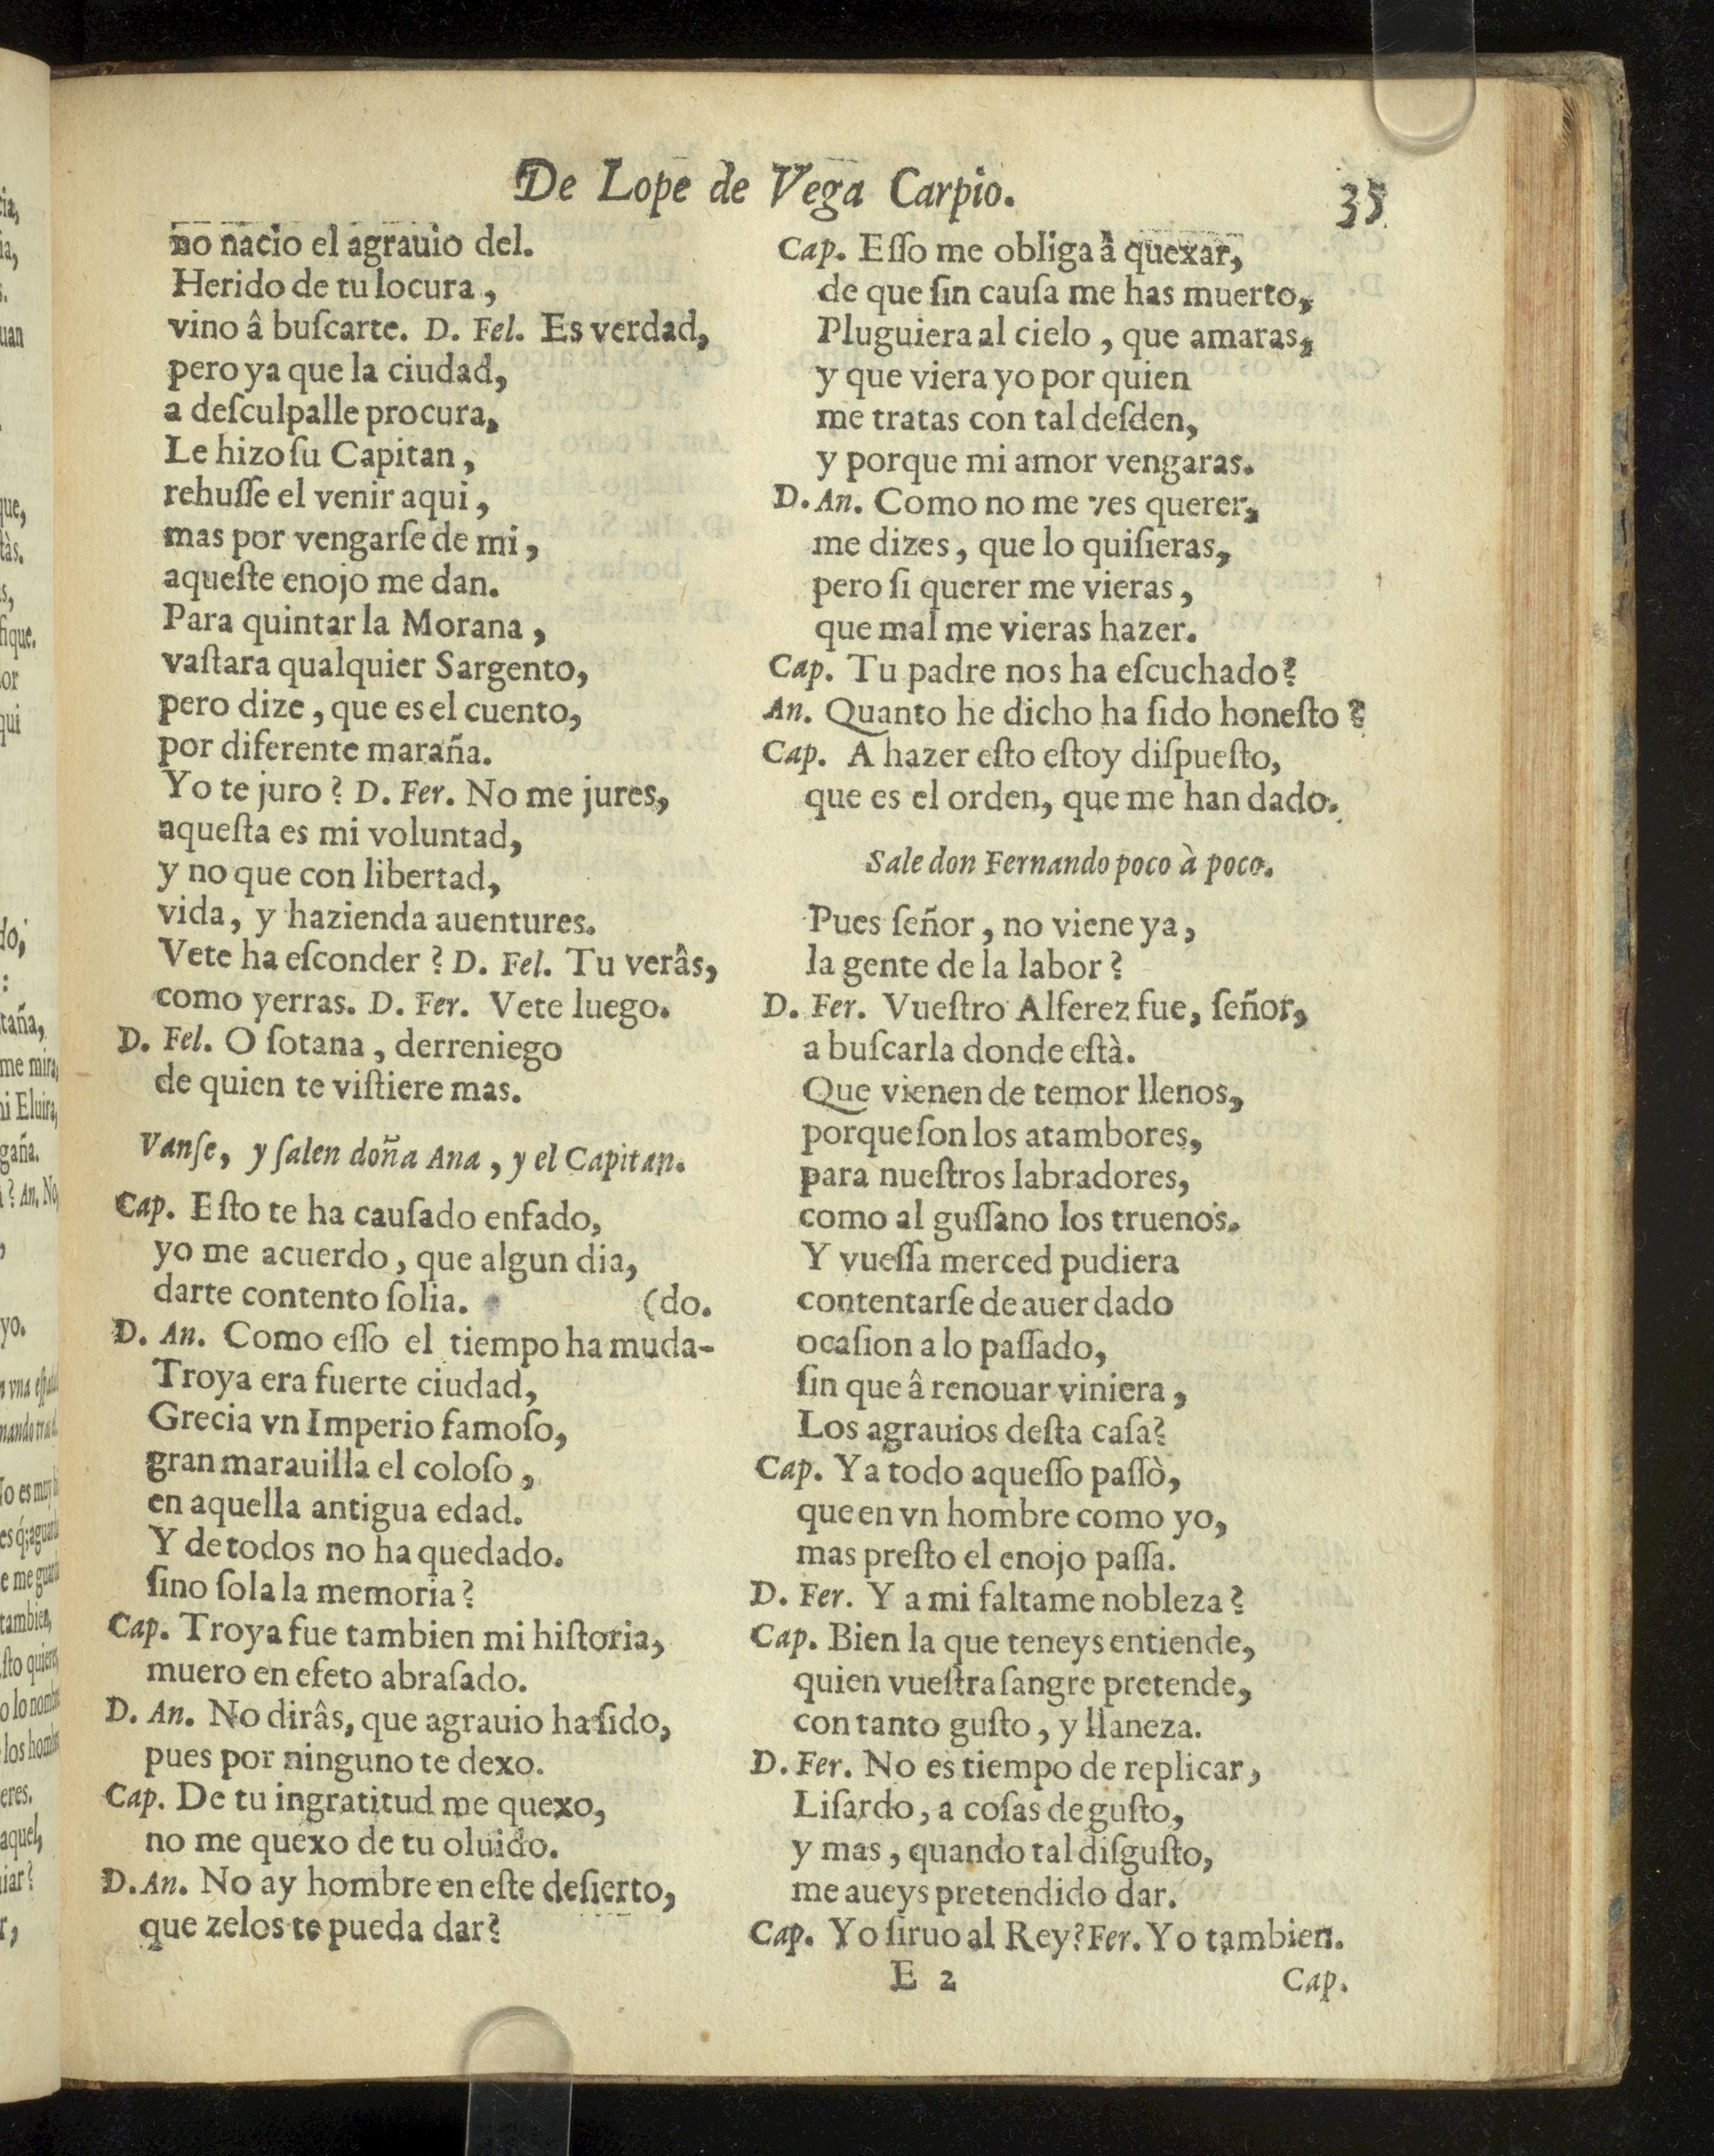 De Lope de Vega Carpio.
35
no nacio el agrauio del.
Herido de tu locura,
vino â buſcarte. D. Fel. Es verdad,
pero ya que la ciudad,
a deſculpalle procura,
Le hizo ſu Capitan,
rehuſſe el venir aqui,
mas por vengarſe de mi,
aqueſte enojo me dan.
Para quintar la Morana,
vaſtara qualquier Sargento,
pero dize, que es el cuento,
por diferente maraña.
Yo te juro? D. Fer. No me jures,
aqueſta es mi voluntad,
y no que con libertad,
vida, y hazienda auentures.
Vete ha eſconder? D. Fel. Tu verâs,
como yerras. D. Fer. Vete luego.
D. Fel. O ſotana, derreniego
de quien te viſtiere mas.
Vanſe, y ſalen doña Ana, y el Capitan.
Cap. Eſto te ha cauſado enfado,
yo me acuerdo, que algun dia,
darte contento ſolia. (do.
D. An. Como eſſo el tiempo ha muda-
Troya era fuerte ciudad,
Grecia vn Imperio famoſo,
gran marauilla el coloſo,
en aquella antigua edad.
Y de todos no ha quedado.
ſino ſola la memoria?
Cap. Troya fue tambien mi hiſtoria,
muero en efeto abraſado.
D. An. No dirâs, que agrauio ha ſido,
pues por ninguno te dexo.
Cap. De tu ingratitud me quexo,
no me quexo de tu oluido.
D. An. No ay hombre en eſte deſierto,
que zelos te pueda dar?
Cap. Eſſo me obliga â quexar,
de que ſin cauſa me has muerto,
Pluguiera al cielo, que amaras,
y que viera yo por quien
me tratas con tal deſden,
y porque mi amor vengaras.
D. An. Como no me ves querer,
me dizes, que lo quiſieras,
pero ſi querer me vieras,
que mal me vieras hazer.
Cap. Tu padre nos ha eſcuchado?
An. Quanto he dicho ha ſido honeſto?
Cap. A hazer eſto eſtoy diſpueſto,
que es el orden, que me han dado.
Sale don Fernando poco à poco.
Pues ſeñor, no viene ya,
la gente de la labor?
D. Fer. Vueſtro Alferez fue, ſeñor,
a buſcarla donde eſtà.
Que vienen de temor llenos,
porque ſon los atambores,
para nueſtros labradores,
como al guſſano los truenos.
Y vueſſa merced pudiera
contentarſe de auer dado
ocaſion a lo paſſado,
ſin que â renouar viniera,
Los agrauios deſta caſa?
Cap. Ya todo aqueſſo paſſò,
que en vn hombre como yo,
mas preſto el enojo paſſa.
D. Fer. Y a mi faltame nobleza?
Cap. Bien la que teneys entiende,
quien vueſtra ſangre pretende,
con tanto guſto, y llaneza.
D. Fer. No es tiempo de replicar,
Liſardo, a coſas de guſto,
y mas, quando tal diſguſto,
me aueys pretendido dar.
Cap. Yo ſiruo al Rey? Fer. Yo tambien.
E 2
Cap.